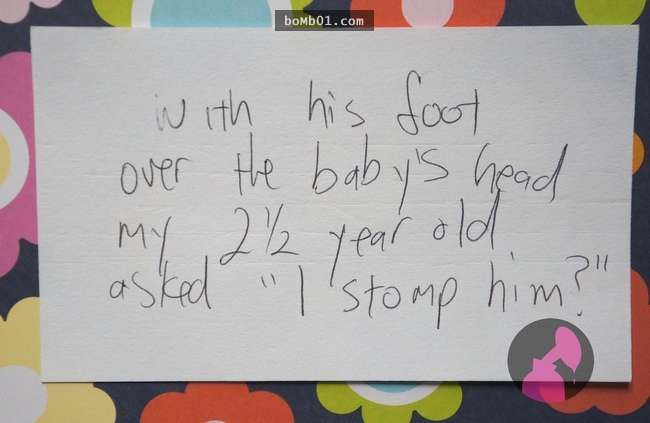 boMb01.com
with his foot
over the baby's head
my 2½ year old
asked "I stomp him?"